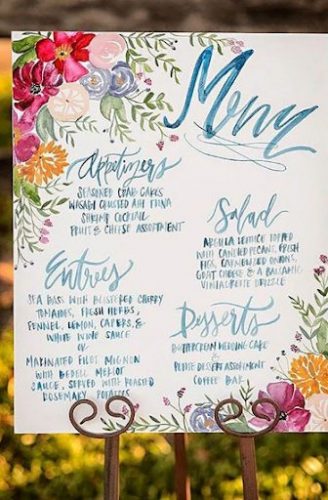 Menu
Appetizers
SEASONED CRAB CAKES
WASABI CRUSTED AHI TUNA
SHRIMP COCKTAIL
FRUIT & CHEESE ASSORTMENT
Salad
ARUGULA LETTUCE TOPPED
WITH CANDIED PECANS, FRESH
FIGS, CARMELIZED ONIONS,
GOAT CHEESE & A BALSAMIC
VINAIGRETTE DRIZZLE
Entrées
SEA BASS WITH BLISTERED CHERRY
TOMATOES, FRESH HERBS,
FENNEL, LEMON, CAPERS, &
WHITE WINE SAUCE
OR
MARINATED FILET MIGNON
WITH BEDELL MERLOT
SAUCE, SERVED WITH ROASTED
ROSEMARY POTATOES
Desserts
BUTTERCREAM WEDDING CAKE
&
PETITE DESSERT ASSORTMENT
COFFEE BAR